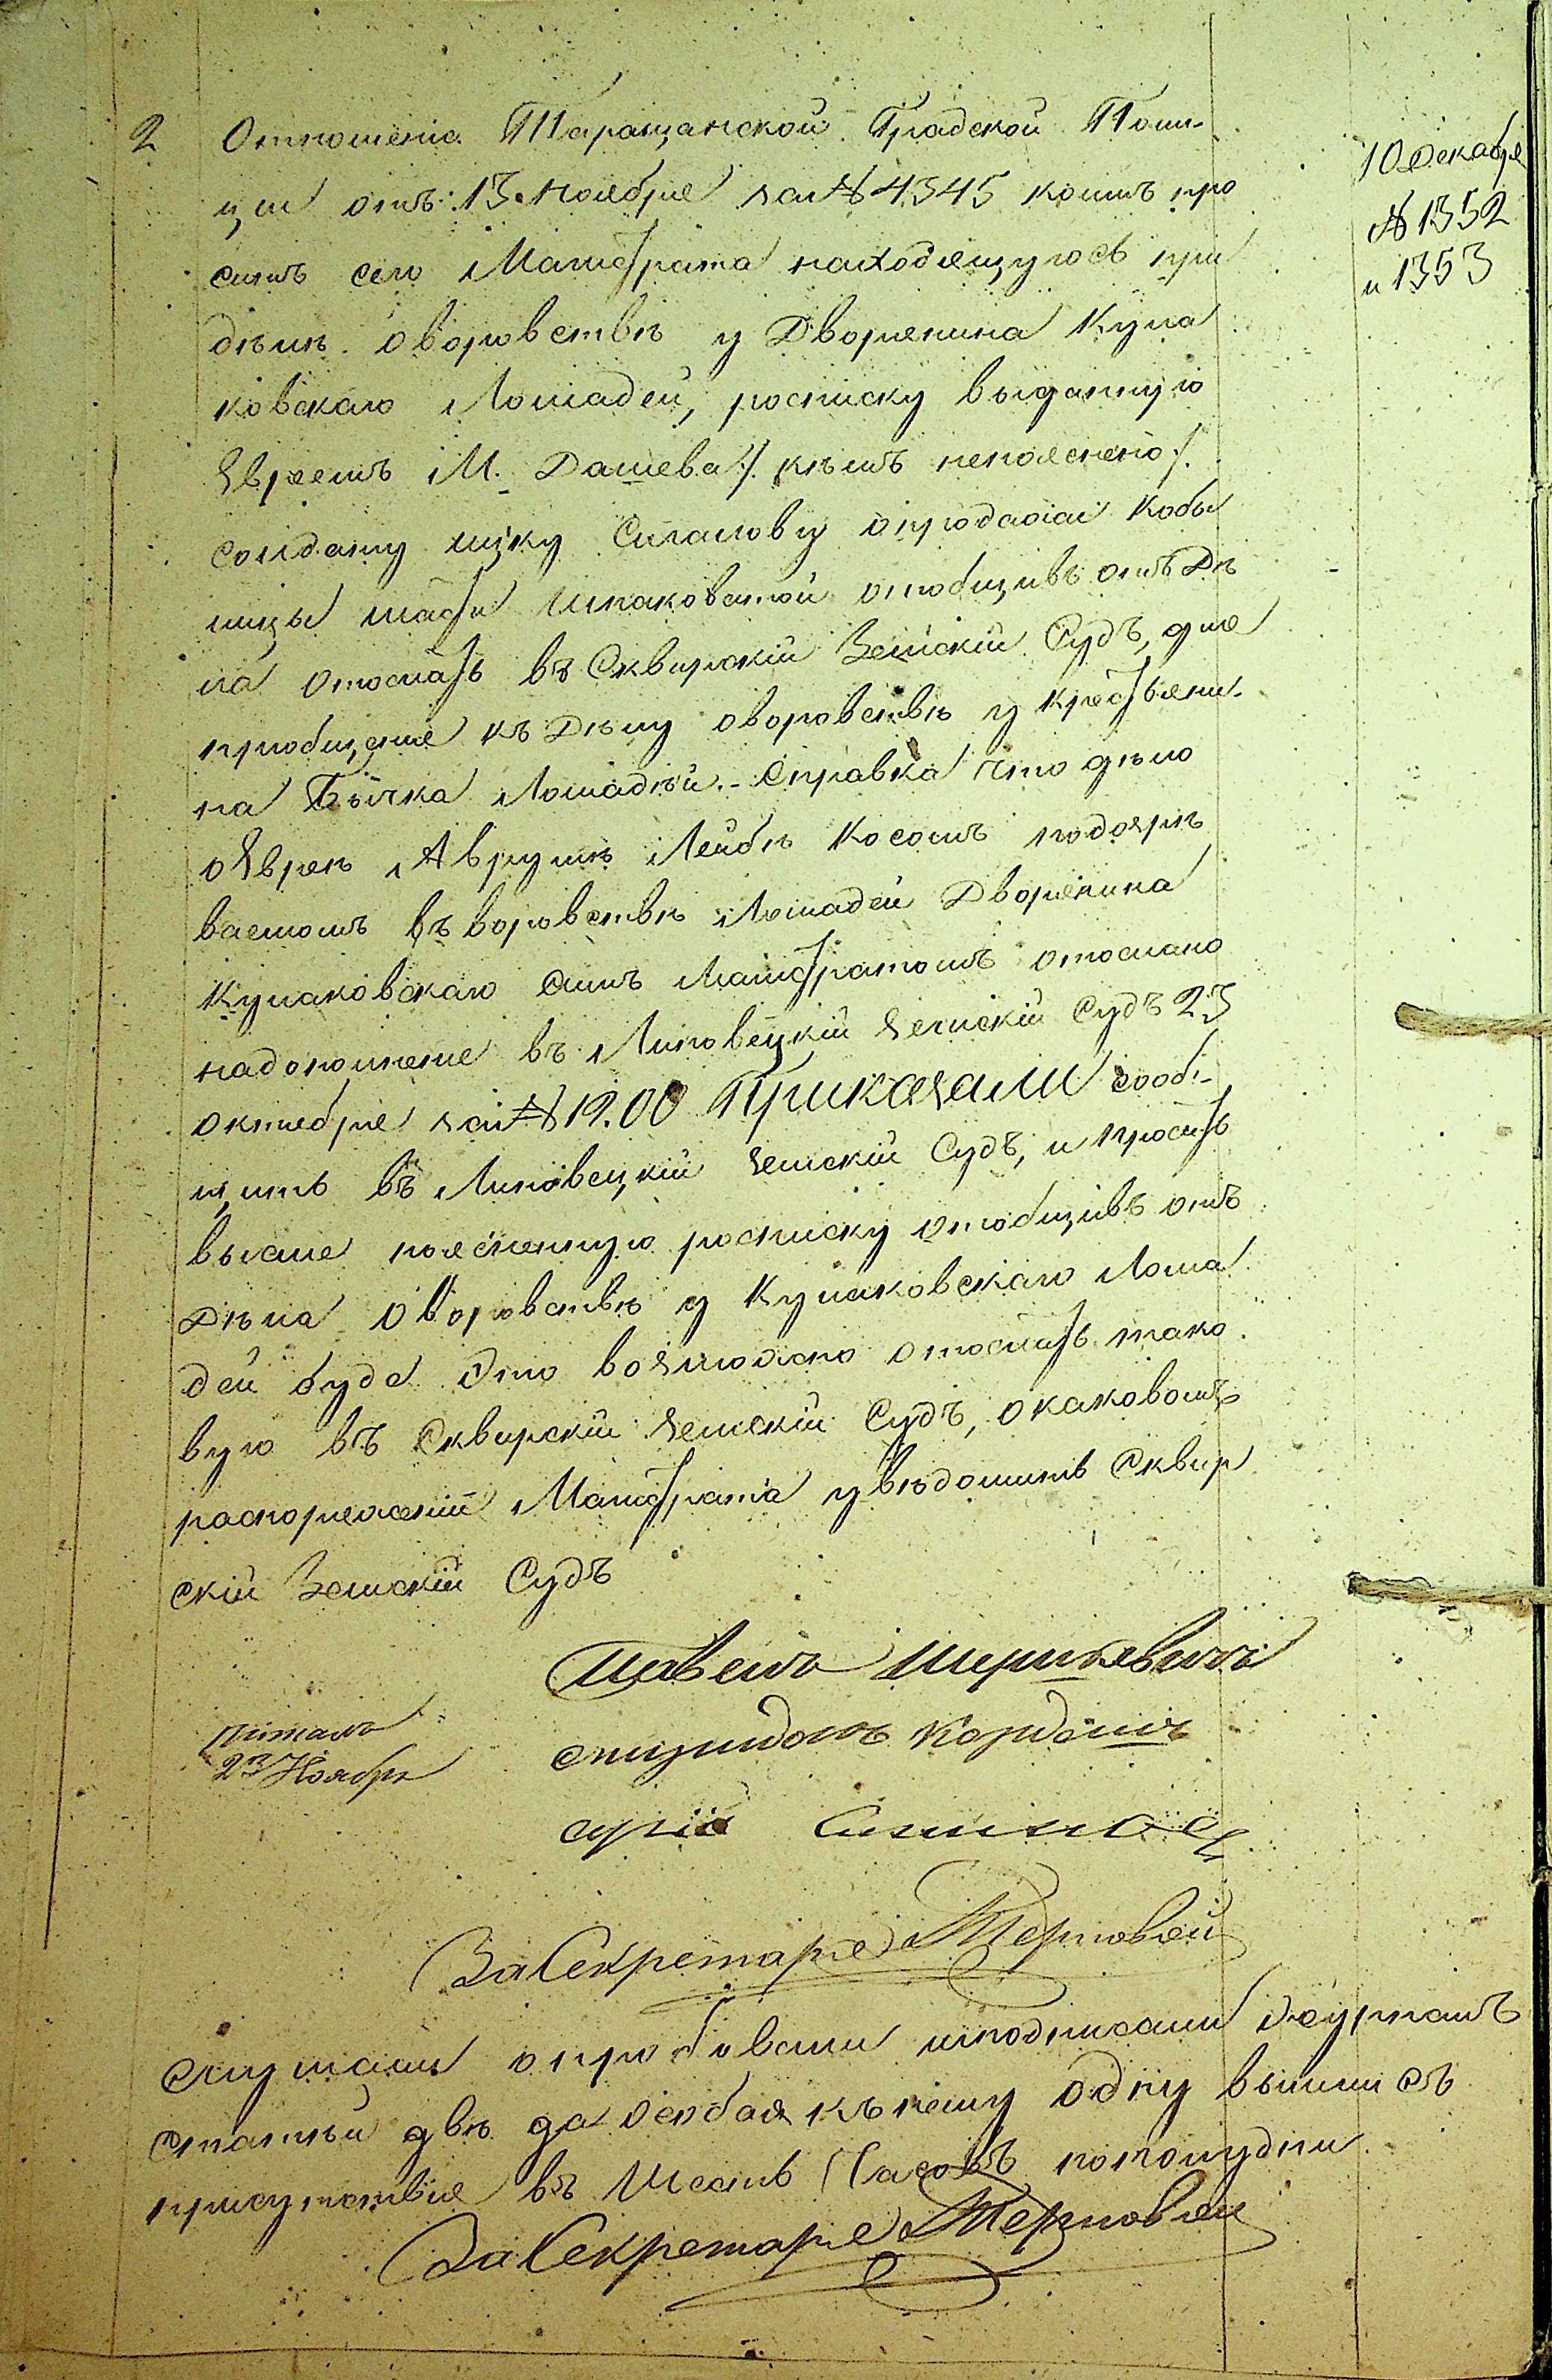 2 Отношеніа Таращанской Градской Поли-
10 Декабря
ціи отъ 13. Ноября за № 4345 коимъ про
№ 1352
ситъ сего Магистрата находящуюсь при
и 1353
дѣлѣ оворовствѣ у Дворянина Кула
ковскаго Лошадей, росписку выданную
Евреемъ М. Дашева /: кѣмъ непояснено :/
солдату Сигалову опродаоіи кобы
лицы масти Шпаковатой отобщивъ отъ Дѣ
ла отослать въ Сквирскій Земскій Судъ, для
пріобщенія къ Дѣлу оворовствѣ у крестьяни-
на Бычка Лошадѣй. - Справка что дѣло
о Евреѣ Аврумѣ Лейбѣ Косомъ подозрѣ
ваемомъ въ воровствѣ Лошадей Дворянина
Кулаковскаго симъ Магистратомъ отослано
надополнение въ Липовецкій Земскій Судъ 23
октября за № 1200 Приказали сооб-
щить въ Липовецкій Земскій Судъ, и просить
выше поясненную росписку отобщивъ отъ
Дѣла О воровствѣ у Кулаковскаго Лоша
дей буде Это возможно отослать тако
вую въ Сквирскій Земскій Судъ, окаковомъ
распоряженіи Магистрата увѣдомить Сквир
скій Земскій Судъ
Павелъ
читалъ
23 Ноября
За Секретаря Терновой
Слушали опробовали иподписали Журналъ
статьи двѣ да особая къ нему одну вышли съ
присутствія въ Шесть Часовъ пополудни
За Секретаря Терновой